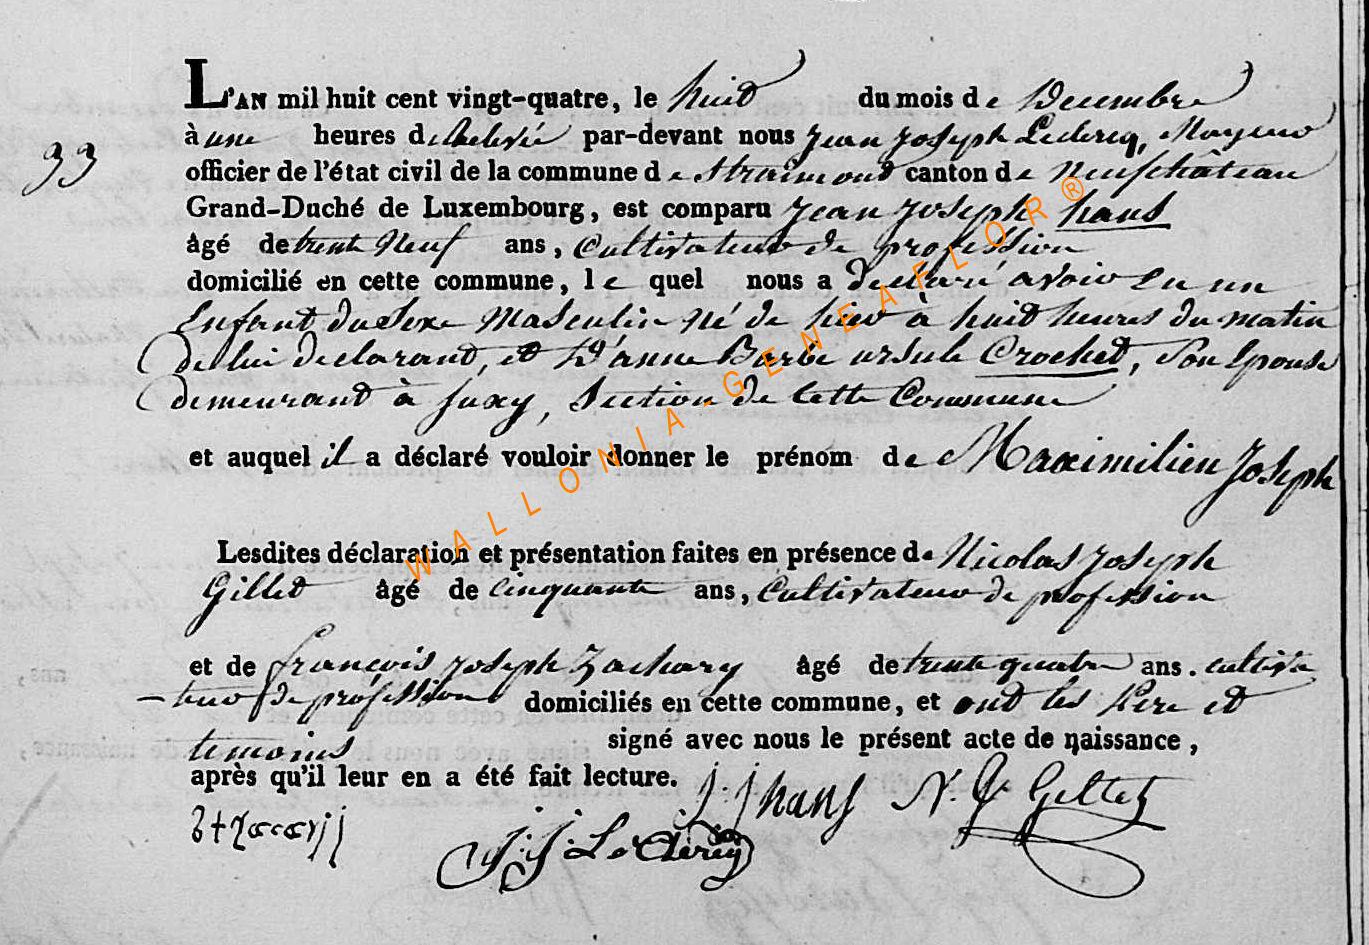 L'AN mil huit cent vingt-quatre, le huit du mois de Decembre
à une heures de Relevée par-devant nous Jean Joseph Leclercq, Mayeur
33
officier de l'état civil de la commune de Straimont canton de Neufchâteau
Grand-Duché de Luxembourg, est comparu Jean Joseph hans
âgé de trente Neuf ans, Cultivateur de profession
domicilié en cette commune, le quel nous a declaré avoir eu un
Enfant du Sexe Masculin né de hier à huit heures du matin
de lui declarant, et d'anne Barbe ursule Crochet, Son Epouse
demeurant à Suxy, Section de Cette Commune
et auquel il a déclaré vouloir donner le prénom de Maximilien Joseph
Lesdites déclaration et présentation faites en présence de Nicolas Joseph
Gillet âgé de cinquante ans, Cultivateur de profession
et de françois Joseph Zachary âgé de trente quatre ans. cultiva
-teur de profession domiciliés en cette commune, et ont les Pere et
temoins signé avec nous le présent acte de naissance,
après qu'il leur en a été fait lecture.
J. J hans N. J. Gillet
J. J. Le Clercq
WALLONIA-GENEAFLOR®